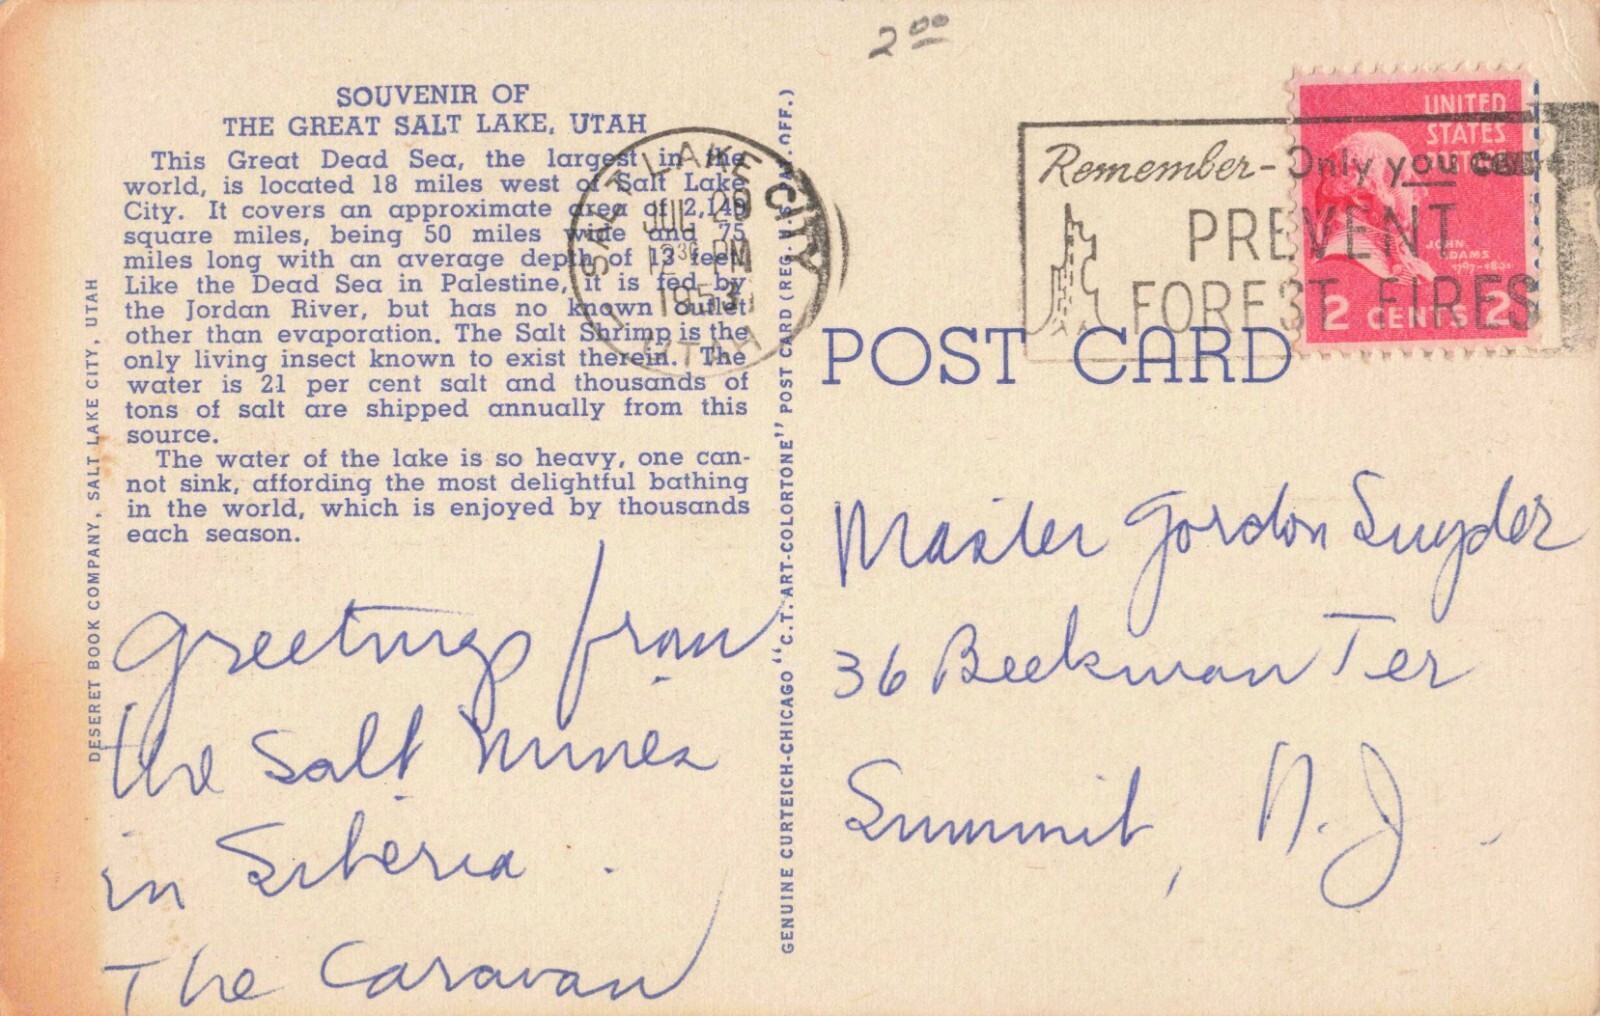 2 00
SOUVENIR OF
THE GREAT SALT LAKE, UTAH
This Great Dead Sea, the largest in the
world, is located 18 miles west of Salt Lake
City. It covers an approximate area of 2,140
square miles, being 50 miles wide and 75
miles long with an average depth of 13 feet.
Like the Dead Sea in Palestine, it is fed by
the Jordan River, but has no known outlet
other than evaporation. The Salt Shrimp is the
only living insect known to exist therein. The
water is 21 per cent salt and thousands of
tons of salt are shipped annually from this
source.
The water of the lake is so heavy, one can-
not sink, affording the most delightful bathing
in the world, which is enjoyed by thousands
each season.
DESERET BOOK COMPANY, SALT LAKE CITY, UTAH
Greetings from
the Salt Mines
in Siberia.
The Caravan
SALT LAKE CITY
JUL 29
12 30 PM
1953
UTAH
GENUINE CURTEICH-CHICAGO "C.T. ART-COLORTONE" POST CARD (REG. U.S. PAT. OFF.)
Remember - Only you can
PREVENT
FOREST FIRES
UNITED
STATES
POSTAGE
JOHN
ADAMS
1797-1801
2 CENTS 2
POST CARD
Master Gordon Snyder
36 Beekman Ter
Summit, N.J.